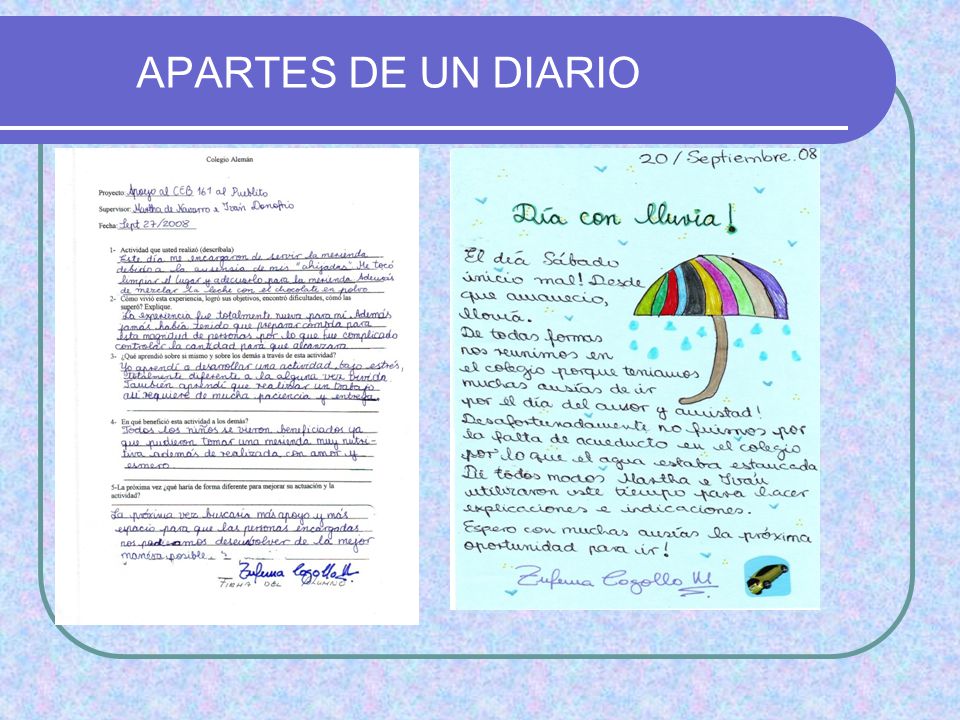 APARTES DE UN DIARIO
Colegio Alemán
Proyecto: Apoyo al CEB 161 al Pueblito
Supervisor: Martha de Navarro e Iván Donofrio
Fecha: Sept 27/2008
1- Actividad que usted realizó (descríbala)
Este día me encargaron de servir la merienda
debido a la ausensia de mis "ahijadas". Me tocó
limpiar el lugar y adecuarlo para la merienda. Además
de mezclar la leche con el chocolate en polvo
2- Cómo vivió esta experiencia, logró sus objetivos, encontró dificultades, cómo las
superó? Explique.
La experiencia fue totalmente nueva para mí. Además
jamás había tenido que preparar comida para
esta magnitud de personas por lo que fue complicado
controlar la cantidad para que alcanzara
3- ¿Qué aprendió sobre si mismo y sobre los demás a través de esta actividad?
Yo aprendí a desarollar una actividad bajo estrés,
totalmente diferente a la alguna vez vivida
También aprendí que realizar un trabajo
así requiere de mucha paciencia y entrega.
4- En qué benefició esta actividad a los demás?
Todos los niños se vieron beneficiados ya
que pudieron tomar una merienda muy nutri-
tiva además de realizada con amor y
esmero.
5-La próxima vez ¿qué haría de forma diferente para mejorar su actuación y la
actividad?
La próxima vez buscaría más apoyo y más
espacio para que las personas encargadas
nos podamos desenvolver de la mejor
manera posible.
Zufema Cogollo M.
FIRMA DEL ALUMNO
20/Septiembre.08
Día con lluvia!
El día Sábado
inicio mal! Desde
que amaneció,
llovía.
De todas formas
nos reunimos en
el colegio porque teníamos
muchas ansías de ir
por el día del amor y amistad!
Desafortunadamente no fuimos por
la falta de acueducto en el colegio
por lo que el agua estaba estancada
De todos modos Martha e Iván
utilizaron este tiempo para hacer
explicaciones e indicaciones.
Espero con muchas ansías la próxima
oportunidad para ir!
Zufema Cogollo M